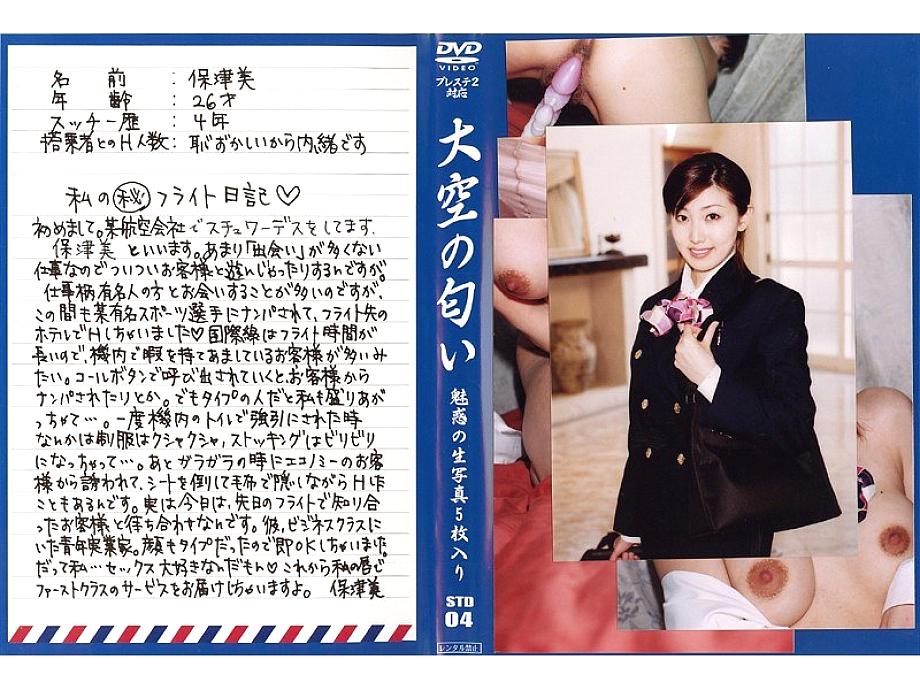 名前：保津美
年齢：26才
スッチー歴：4年
搭乗者とのH人数：恥ずかしいから内緒です
私の㊙フライト日記♡
初めまして。某航空会社でスチュワーデスをしてます、
保津美といいます。あまり「出会い」が多くない
仕事なのでついついお客様と遊んじゃったりするんですが。
仕事柄有名人の方とお会いすることが多いのですが、
この間も某有名スポーツ選手にナンパされて、フライト先の
ホテルでHしちゃいました♡国際線はフライト時間が
長いので、機内で暇を持てあましているお客様が多いみ
たい。コールボタンで呼び出されていくと、お客様から
ナンパされたりとか。でもタイプの人だと私も盛りあが
っちゃて…。一度機内のトイレで強引にされた時
なんかは制服はクシャクシャ、ストッキングはビリビリ
になっちゃって…。あとガラガラの時にエコノミーのお客
様から誘われて、シートを倒して毛布で隠しながらHした
こともあるんです。実は今日は、先日のフライトで知り合
ったお客様と待ち合わせなんです。彼、ビジネスクラスに
いた青年実業家。顔もタイプだったので即OKしちゃいました。
だって私…セックス大好きなんだもん♡これから私の
ファーストクラスのサービスをお届けしちゃいますよ。 保津美
DVD
VIDEO
プレステ2
対応
大空の匂い
魅惑の生写真5枚入り
STD
04
レンタル禁止